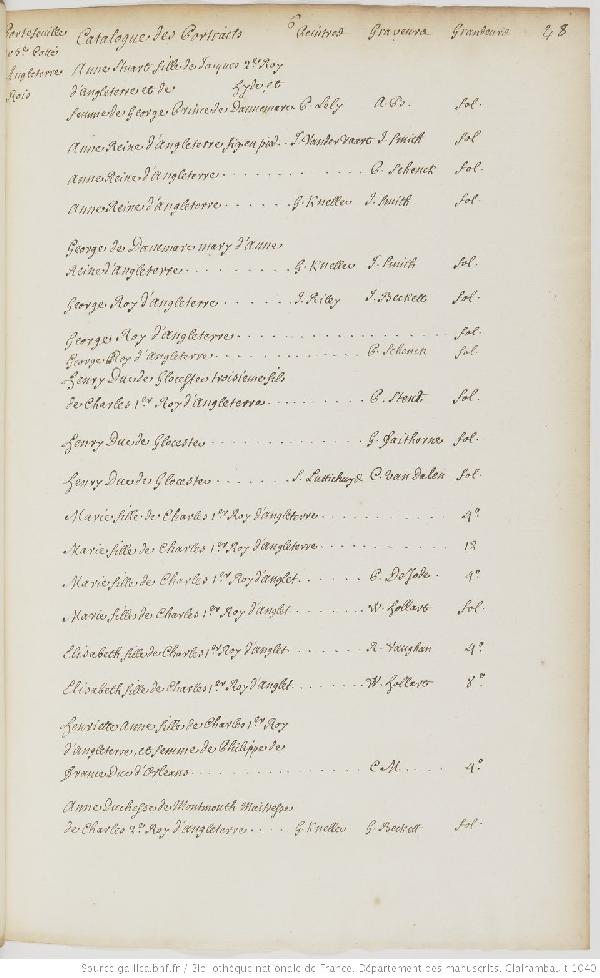 Portefeuille Catalogue des Portraits Peintres Graveurs Grandeurs 48
Angleterre
Rois
Anne Stuart fille de Jacques 2e Roy
d'Angleterre et de Hyde, et
femme de George Prince de Dannemarc P. Lely A. Bo. fol.
Anne Reine d'Angleterre fig en pied. J. Vander Vaart J. Smith fol
Anne Reine d'Angleterre P. Schenck fol.
Anne Reine d'Angleterre G. Kneller J. Smith fol.
George de Danemarc mary d'Anne
Reine d'Angleterre G. Kneller J. Smith fol.
George Roy d'Angleterre J. Riley J. Beckett fol.
George Roy d'Angleterre fol.
George Roy d'Angleterre P. Schenck fol.
Henry Duc de Glocestre troisieme fils
de Charles 1er Roy d'Angleterre P. Stent fol.
Henry Duc de Glocestre G. Faithorne fol.
Henry Duc de Glocestre S. Luttichuyd C. van Dalen fol.
Marie fille de Charles 1er Roy d'Angleterre 4°
Marie fille de Charles 1er Roy d'Angleterre 12
Marie fille de Charles 1er Roy d'Anglet P. De Jode 4°
Marie fille de Charles 1er Roy d'Anglet W. Hollart fol.
Elisabeth fille de Charles 1er Roy d'Anglet R. Vaughan 4°
Elisabeth fille de Charles 1er Roy d'Anglet W. Hollart 8°
Henriette Anne fille de Charles 1er Roy
d'Angleterre, et femme de Philippe de
France Duc d'Orleans C.M. 4°
Anne Duchesse de Montmouth Maitresse
de Charles 2e Roy d'Angleterre G. Kneller G. Beckett fol.
Source gallica.bnf.fr / Bibliothèque nationale de France. Département des manuscrits. Clairambault 1040